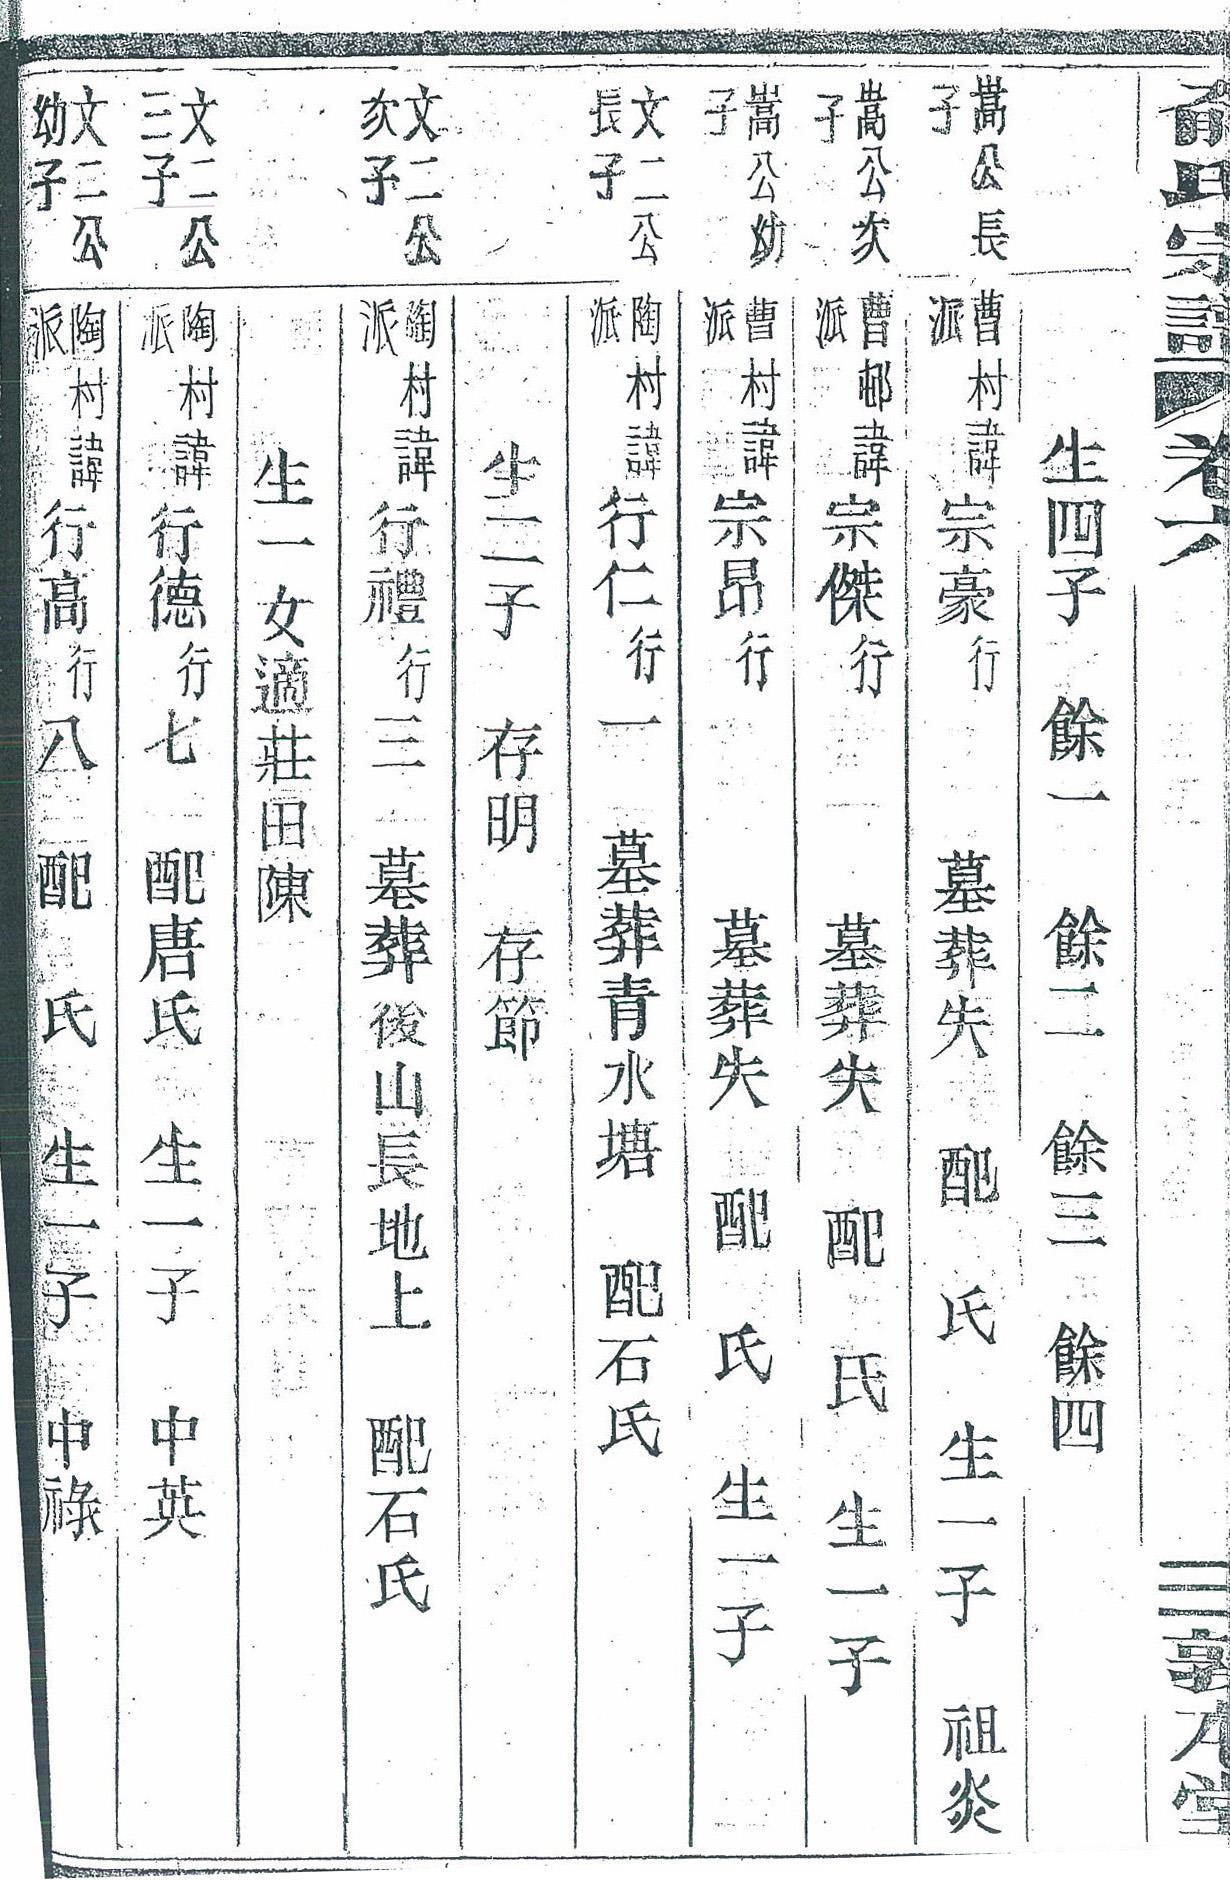 俞氏宗譜 卷六 三 敦本堂
生四子 餘一 餘二 餘三 餘四
嵩公長子 曹村派諱宗豪行 墓葬失 配 氏 生一子 祖炎
嵩公次子 曹邨派諱宗傑行 墓葬失 配 氏 生一子
嵩公幼子 曹村派諱宗昂行 墓葬失 配 氏 生一子
文二公長子 陶村派諱行仁行一 墓葬青水塘 配石氏
生二子 存明 存節
文二公次子 陶村派諱行禮行三 墓葬後山長地上 配石氏
生一女適莊田陳
文二公三子 陶村派諱行德行七 配唐氏 生一子 中英
文二公幼子 陶村派諱行高行八 配 氏 生一子 中祿